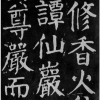 修香火
譚仙巖
尊嚴而